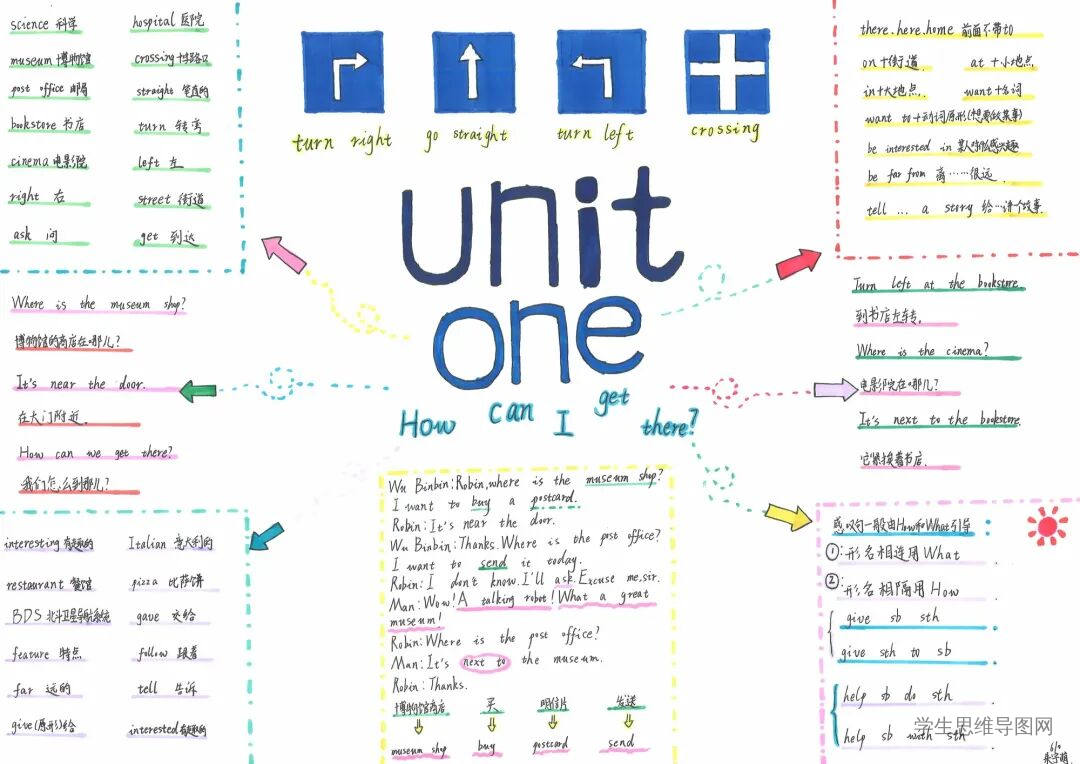 science 科学
hospital 医院
museum 博物馆
crossing 十字路口
post office 邮局
straight 笔直的
bookstore 书店
turn 转弯
cinema 电影院
left 左
right 右
street 街道
ask 问
get 到达
turn right
go straight
turn left
crossing
there.here.home 前面不带to
on+街道
at+小地点
in+大地点
want+名词
want to+动词原形(想要做某事)
be interested in 某人对啥感兴趣
be far from 离……很远
tell ... a story 给…讲个故事
unit
one
How can I get there?
Where is the museum shop?
博物馆的商店在哪儿?
It's near the door.
在大门附近。
How can we get there?
我们怎么到那儿?
Turn left at the bookstore.
到书店左转。
Where is the cinema?
电影院在哪儿?
It's next to the bookstore.
它紧挨着书店。
interesting 有趣的
Italian 意大利的
restaurant 餐馆
pizza 比萨饼
BDS 北斗卫星导航系统
gave 交给
feature 特点
follow 跟着
far 远的
tell 告诉
give(原形)给
interested 有趣的
Wu Binbin:Robin,where is the museum shop?
I want to buy a postcard.
Robin:It's near the door.
Wu Binbin:Thanks.Where is the post office?
I want to send it today.
Robin:I don't know.I'll ask.Excuse me,sir.
Man:Wow!A talking robot!What a great
museum!
Robin:Where is the post office?
Man:It's next to the museum.
Robin:Thanks.
博物馆商店 买 明信片 发送
museum shop buy postcard send
感叹句一般由How和What引导
①:形名相连用What
②:形名相隔用How
give sb sth
give sth to sb
help sb do sth
help sb with sth
学生思维导图网